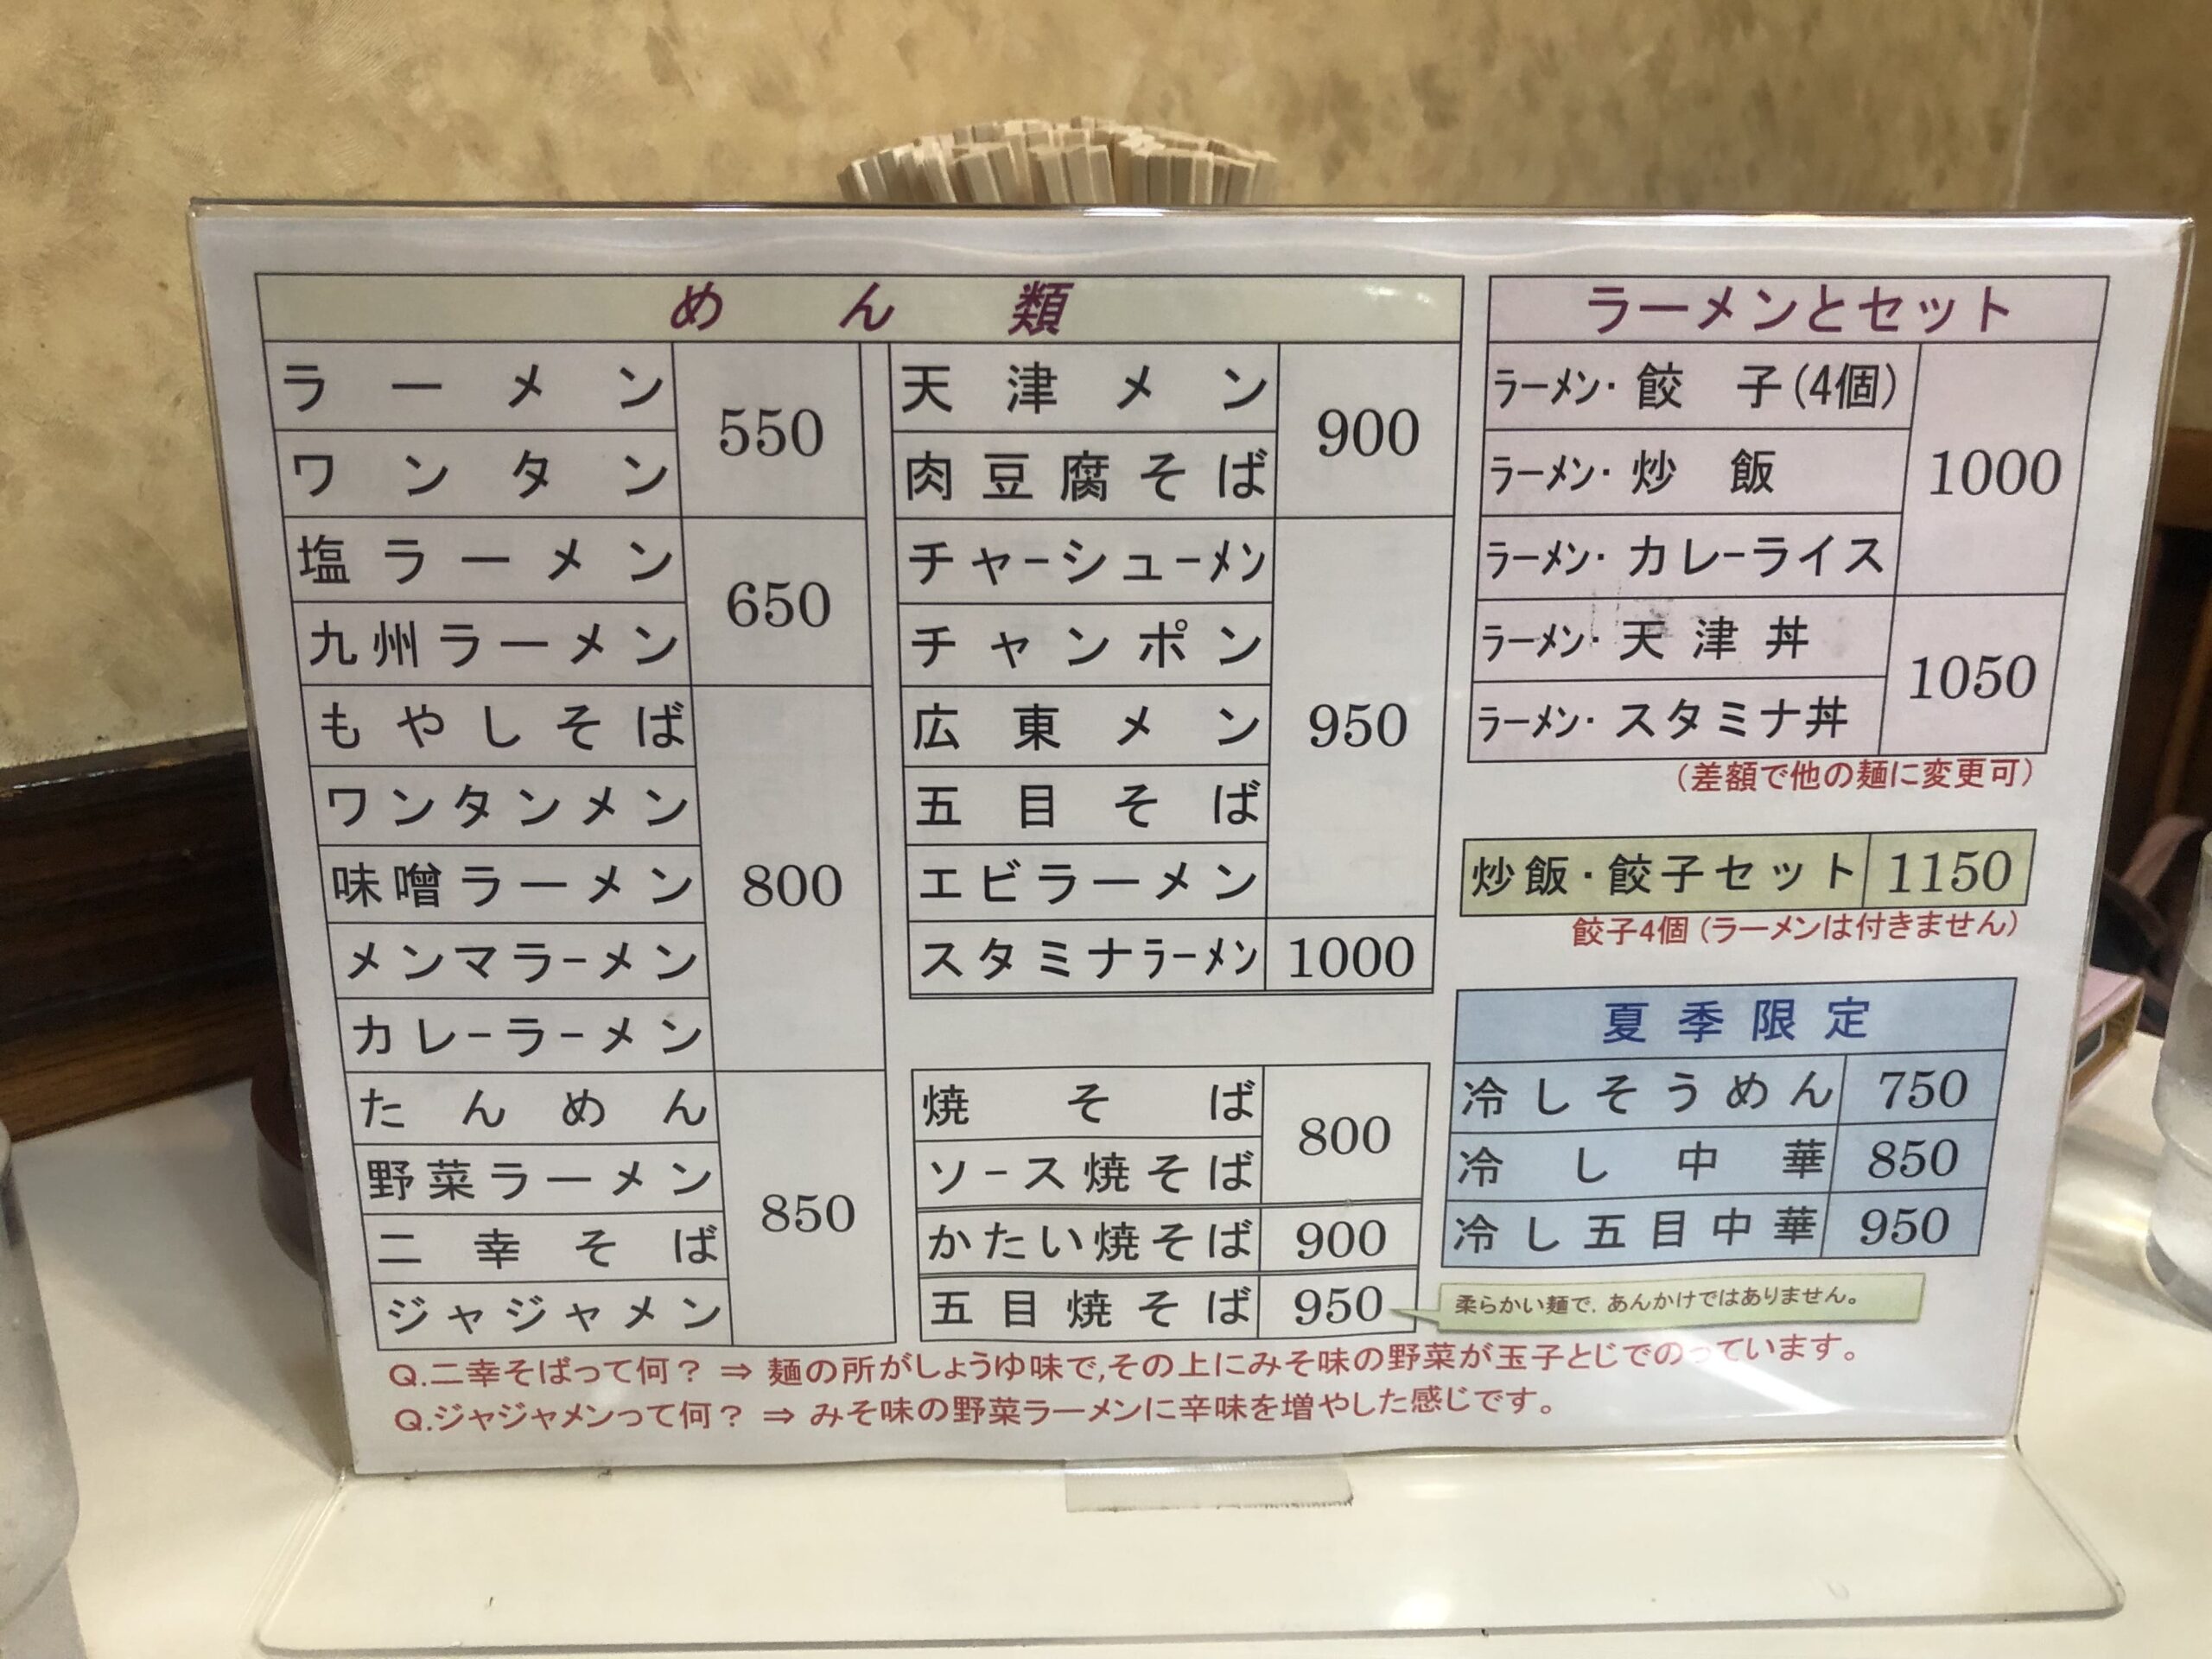 めん類
ラーメン
ワンタン
550
塩ラーメン
九州ラーメン
650
もやしそば
ワンタンメン
味噌ラーメン
メンマラーメン
カレーラーメン
800
たんめん
野菜ラーメン
二幸そば
ジャジャメン
850
天津メン
肉豆腐そば
900
チャーシューメン
チャンポン
広東メン
五目そば
エビラーメン
950
スタミナラーメン 1000
焼そば
ソース焼そば
800
かたい焼そば 900
五目焼そば 950
柔らかい麺で、あんかけではありません。
ラーメンとセット
ラーメン・餃子(4個)
ラーメン・炒飯
ラーメン・カレーライス
1000
ラーメン・天津丼
ラーメン・スタミナ丼
1050
(差額で他の麺に変更可)
炒飯・餃子セット 1150
餃子4個(ラーメンは付きません)
夏季限定
冷しそうめん 750
冷し中華 850
冷し五目中華 950
Q.二幸そばって何？ ⇒ 麺の所がしょうゆ味で,その上にみそ味の野菜が玉子とじでのっています。
Q.ジャジャメンって何？ ⇒ みそ味の野菜ラーメンに辛味を増やした感じです。